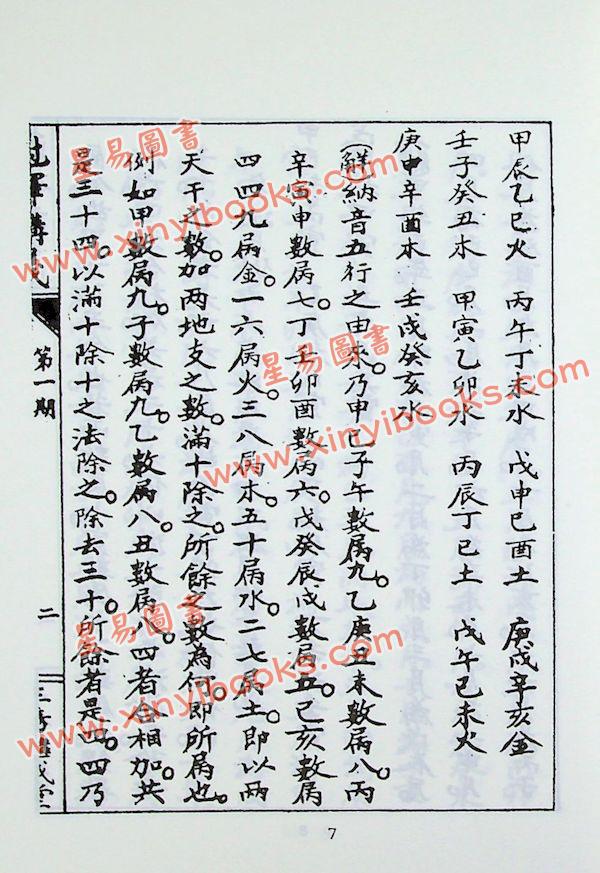 甲辰乙巳火　丙午丁未水　戊申己酉土　庚戌辛亥金
壬子癸丑木　甲寅乙卯水　丙辰丁巳土　戊午己未火
庚申辛酉木　壬戌癸亥水
(解)納音五行之由來。乃甲己子午數屬九。乙庚丑未數屬八。丙
辛寅申數屬七。丁壬卯酉數屬六。戊癸辰戌數屬五。己亥數屬
四。四九屬金。一六屬火。三八屬木。五十屬水。二七屬土。即以兩
天干之數。加两地支之數。滿十除之。所餘之數為何。即所屬也。
例如甲數屬九。子數屬九。乙數屬八。丑數屬八。四者合相加。共
是三十四。以滿十除十之法除之。除去三十。所餘者是四。四乃
講義
第一期
二
7
星易圖書
www.xinyibooks.com
星易圖書
www.xinyibooks.com
星易圖書
www.xinyibooks.com